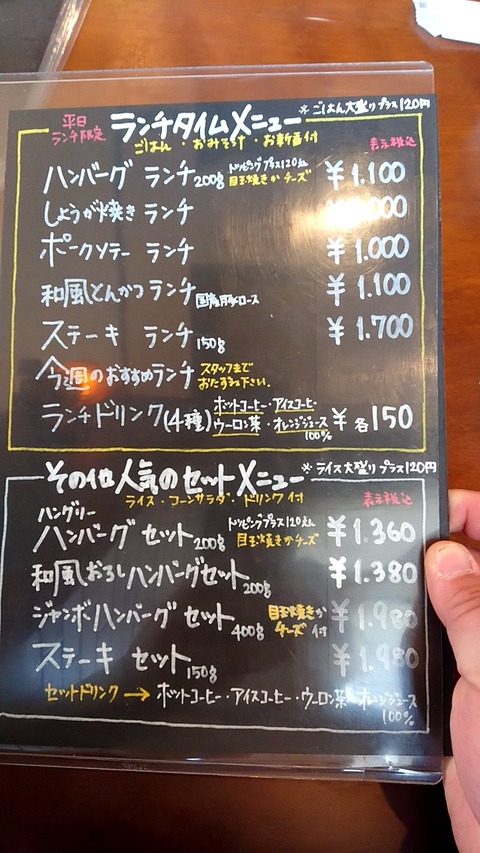 ※ごはん大盛りプラス120円
平日
ランチ限定
ランチタイムメニュー
ごはん・おみそ汁・お新香付
表示税込
ハンバーグ ランチ 200g トッピングプラス120円 目玉焼きかチーズ ¥1.100
しょうが焼き ランチ
ポークソテー ランチ ¥1.000
和風とんかつ ランチ 国産豚ロース ¥1.100
ステーキ ランチ 150g ¥1.700
今週のおすすめランチ スタッフまで おたずね下さい.
ランチドリンク(4種) ホットコーヒー・アイスコーヒー ウーロン茶・オレンジジュース 100% ¥各150
その他人気のセットメニュー ※ライス大盛りプラス120円
ライス・コーンサラダ・ドリンク付
表示税込
ハングリー
ハンバーグ セット 200g トッピングプラス120円 目玉焼きかチーズ ¥1.360
和風おろしハンバーグセット 200g ¥1.380
ジャンボハンバーグ セット 400g 目玉焼きか チーズ 付 ¥1.980
ステーキ セット 150g ¥1.980
セットドリンク → ホットコーヒー・アイスコーヒー・ウーロン茶・オレンジジュース
100%